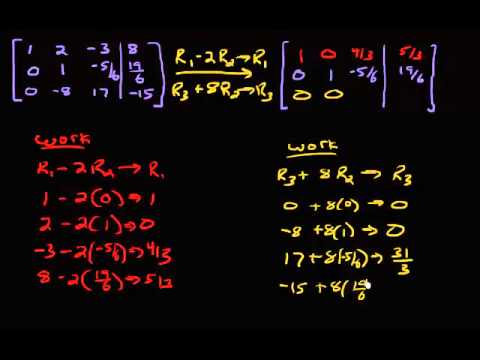 1 2 -3 | 8
0 1 -5/6 | 19/6
0 -8 17 | -15
R₁ - 2R₂ → R₁
R₃ + 8R₂ → R₃
1 0 4/3 | 5/3
0 1 -5/6 | 19/6
0 0
work
R₁ - 2R₂ → R₁
1 - 2(0) → 1
2 - 2(1) → 0
-3 - 2(-5/6) → 4/3
8 - 2(19/6) → 5/3
work
R₃ + 8R₂ → R₃
0 + 8(0) → 0
-8 + 8(1) → 0
17 + 8(-5/6) → 31/3
-15 + 8(19/6